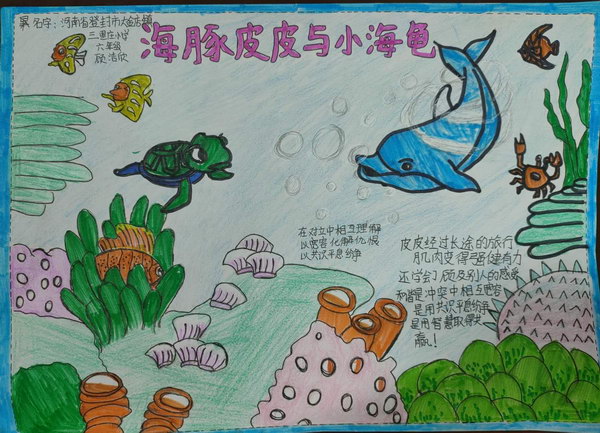 名字：河南省登封市大金店镇
三里庄小学
六年级
顾洁欣
海豚皮皮与小海龟
在对立中相互理解
以宽容化解仇恨
以共识平息纷争
皮皮经过长途的旅行
肌肉变得强健有力
还学会了顾及别人的感受
和谐是冲突中相互宽容
是用共识平息纷争
是用智慧取得共
赢！